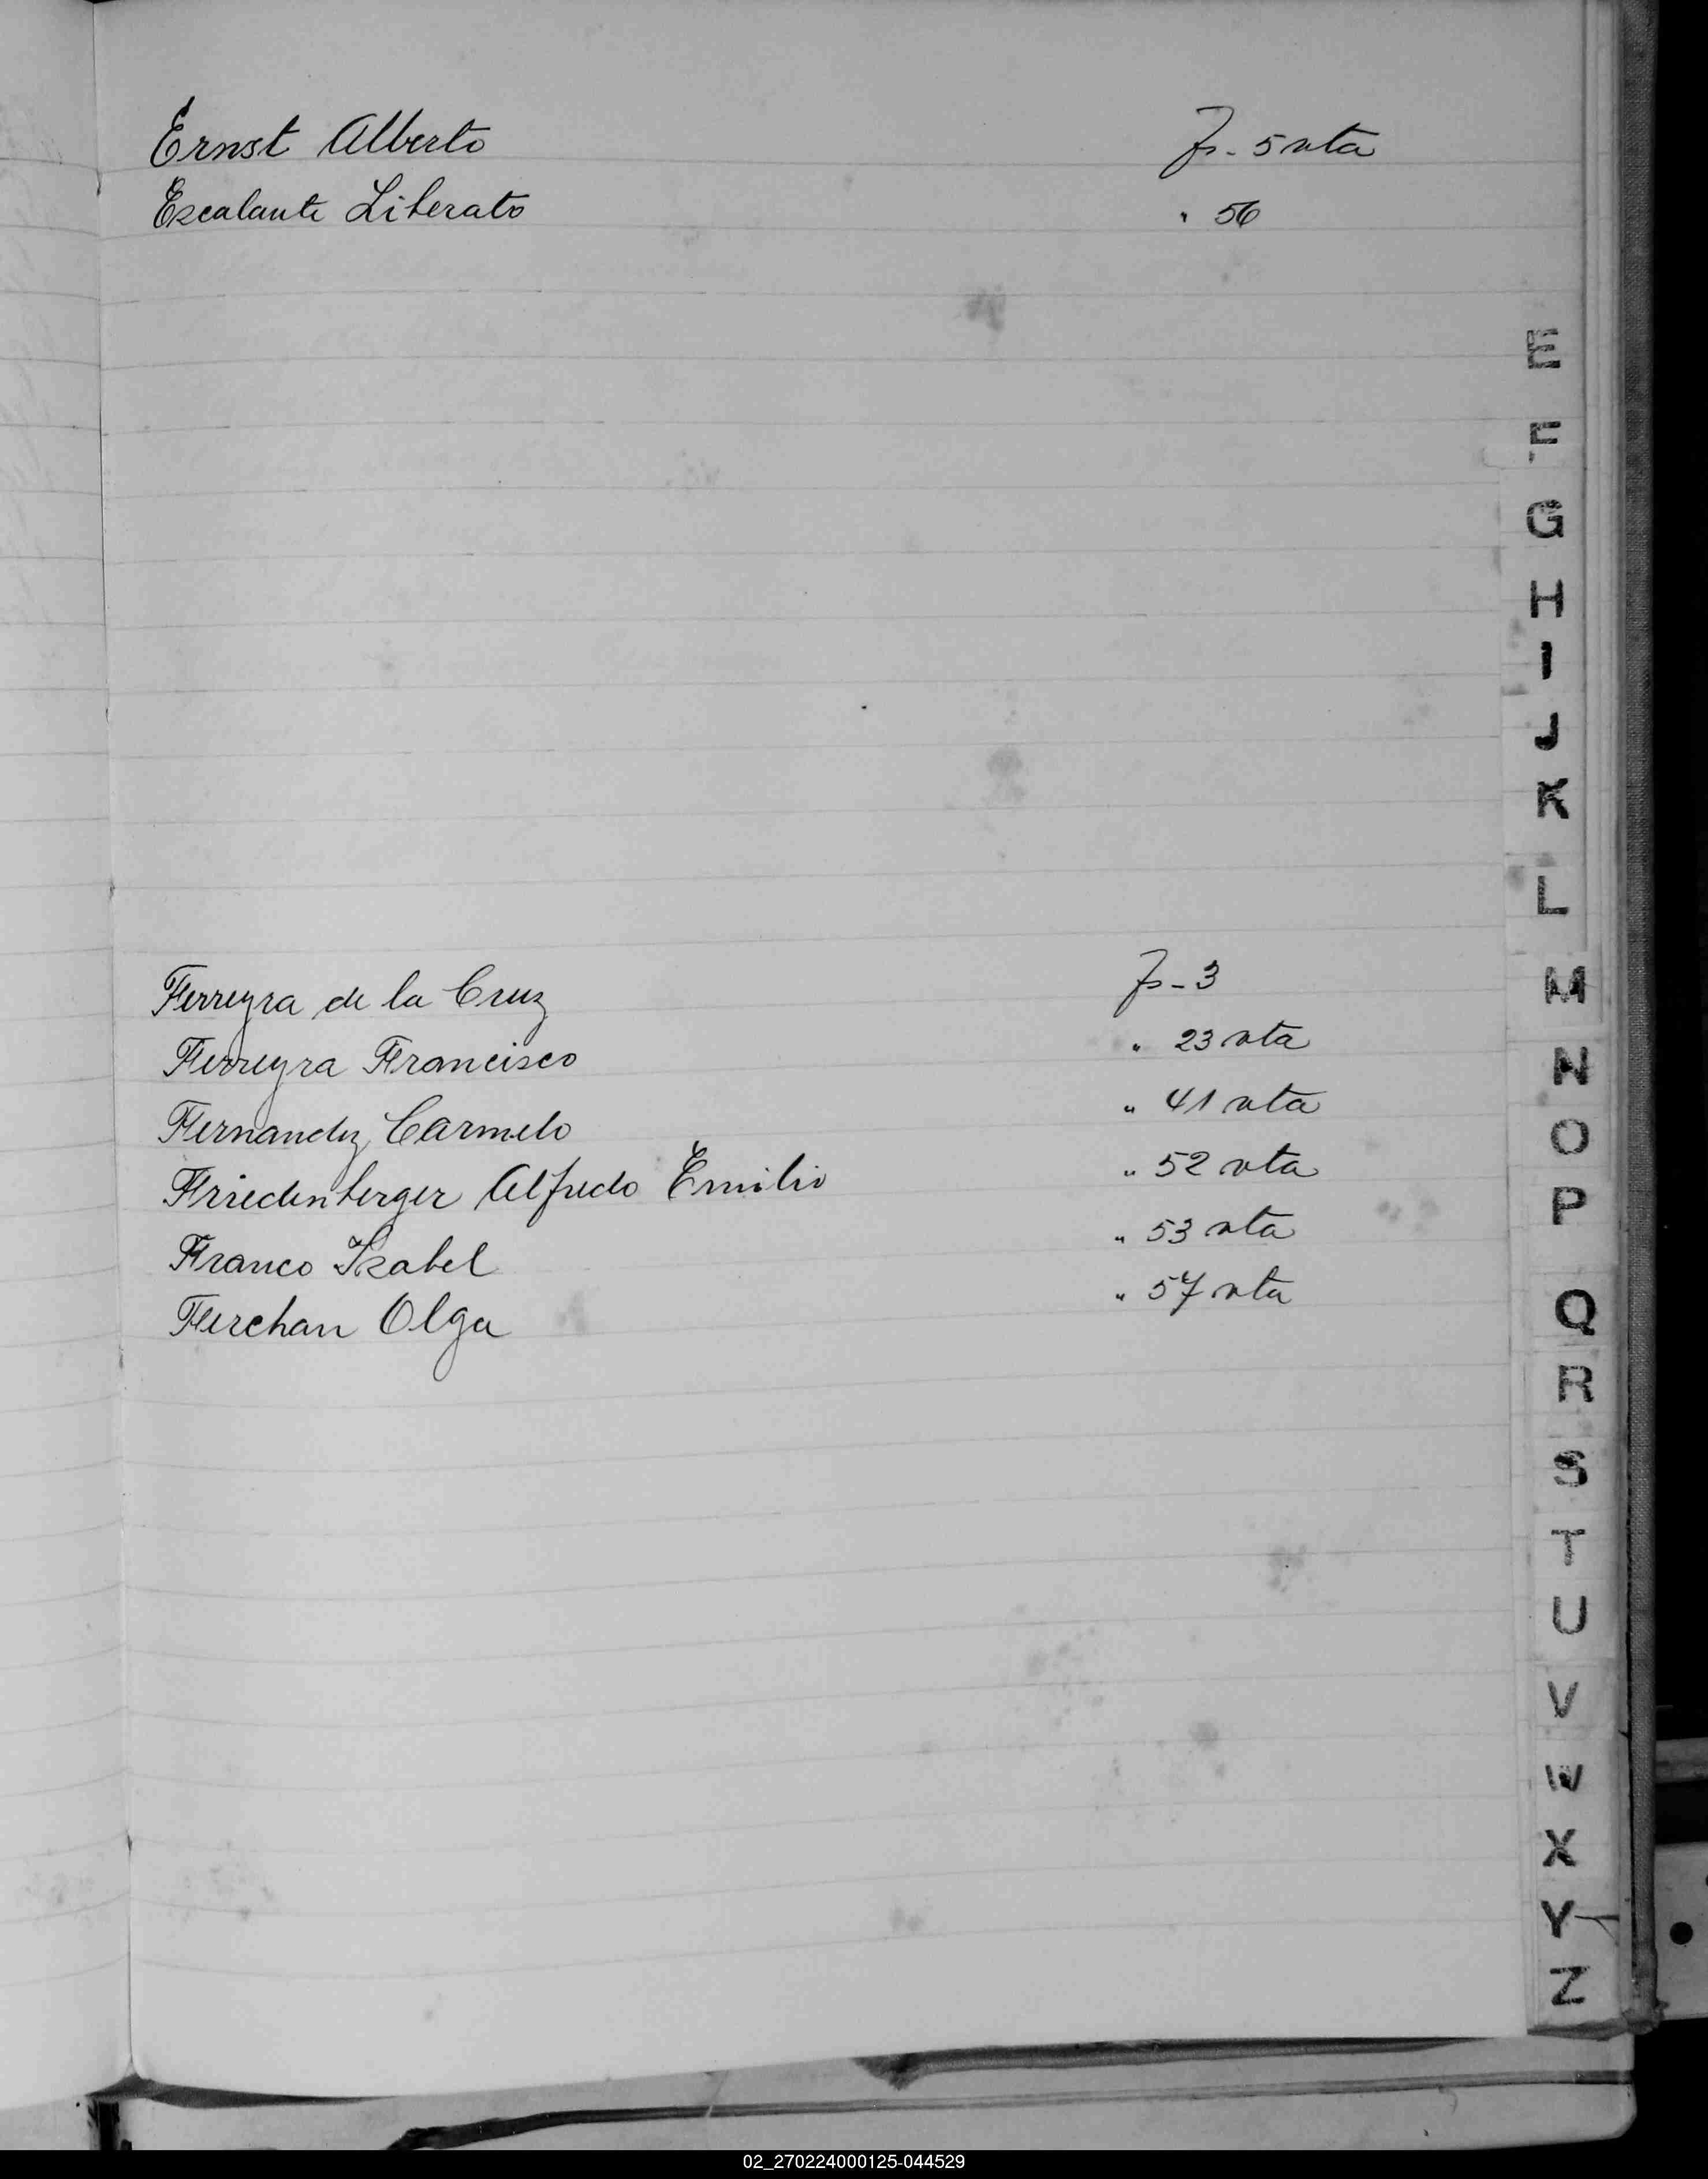 Ernst Alberto fs - 5 vta
Escalante Liberato " 56
Ferreyra de la Cruz fs - 3
Ferreyra Francisco " 23 vta
Fernandez Carmelo " 41 vta
Friedenberger Alfredo Emilio " 52 vta
Franco Isabel " 53 vta
Ferchan Olga " 57 vta
E
F
G
H
I
J
K
L
M
N
O
P
Q
R
S
T
U
V
W
X
Y
Z
02_270224000125-044529